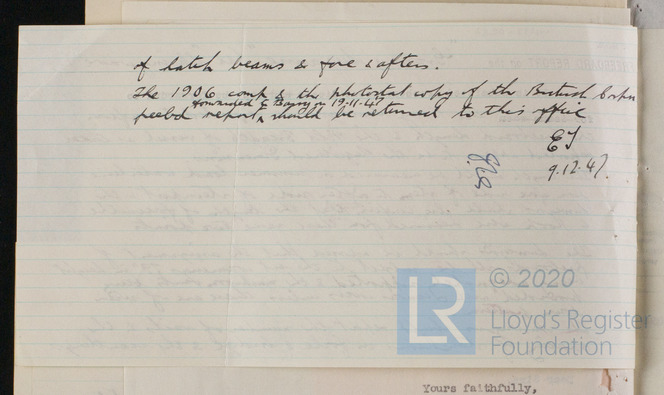 of hatch beams & fore & afters.
The 1906 comp & the photostat copy of the British Corpn
forwarded to Barry on 19-11-47
freebd report ^ should be returned to this office
EJ
9.12.47.
© 2020
LR
Lloyd's Register
Foundation
Yours faithfully,